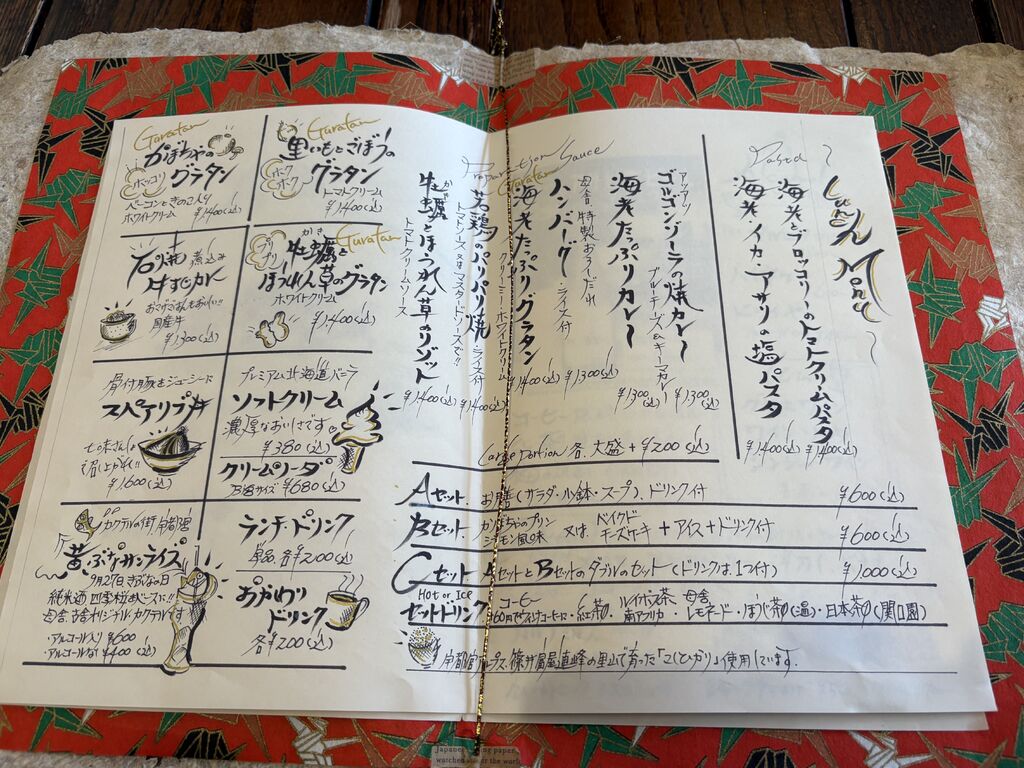 Lunch Menu
Pasta
海老とブロッコリーのトマトクリームパスタ
¥1,400(込)
海老・イカ・アサリの塩パスタ
¥1,400(込)
アツアツ
ゴルゴンゾーラの焼カレー
ブルーチーズ&キーマカレー
¥1,300(込)
海老たっぷりカレー
¥1,300(込)
ハンバーグ
ライス付
¥1,300(込)
海老たっぷりグラタン
クリーミーホワイトクリーム
¥1,400(込)
Sauce
若鶏のパリパリ焼
ライス付
トマトソース又はマスタードソースで!!
¥1,400(込)
牡蠣とほうれん草のリゾット
トマトクリームソース
¥1,400(込)
Large portion 各、大盛+¥200(込)
Aセット お膳(サラダ・小鉢・スープ)、ドリンク付 ¥600(込)
Bセット かぼちゃのプリン シナモン風味 又は ベイクドチーズケーキ+アイス+ドリンク付 ¥600(込)
Cセット AセットとBセットのダブルのセット(ドリンクは1つ付) ¥1,000(込)
Hot or Ice
セットドリンク
コーヒー
紅茶・ルイボス茶
南アフリカ
レモネード・ほうじ茶(温)・日本茶(関口園)
里山で育った「こしひかり」使用しています。
Guratan
かぼちゃの
グラタン
ホッコリ
ベーコンときのこ入り
ホワイトクリーム
¥1,400(込)
Guratan
里いもとごぼうの
グラタン
ホクホク
トマトクリーム
¥1,400(込)
煮込み
国産牛
¥1,300(込)
プリプリ
牡蠣と
Guratan
ほうれん草のグラタン
ホワイトクリーム
¥1,400(込)
骨付豚をジューシーに
スペアリブ丼
¥1,600(込)
プレミアム北海道バニラ
ソフトクリーム
濃厚なおいしさです
¥380(込)
クリームソーダ
¥680(込)
カクテルの街、宇都宮
黄ぶなサンライズ
9月27日きぶなの日
オリジナルカクテルです
・アルコール入り ¥600
・アルコールなし ¥400(込)
ランチ・ドリンク
単品、各¥200(込)
おかわり
ドリンク
各¥200(込)